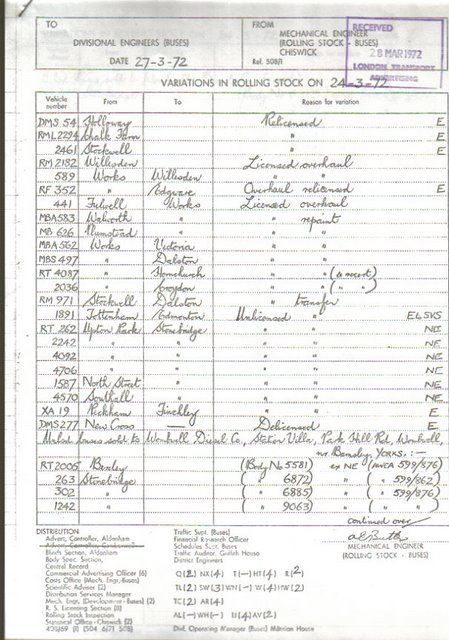 TO
DIVISIONAL ENGINEERS (BUSES)
DATE 27-3-72
FROM
MECHANICAL ENGINEER
(ROLLING STOCK - BUSES)
CHISWICK
Ref. 508/1
RECEIVED
28 MAR 1972
LONDON TRANSPORT
ADVERTISING
VARIATIONS IN ROLLING STOCK ON 24-3-72
Vehicle number From To Reason for variation
DMS 54 Holloway Relicensed E
RML 2294 Chalk Farm " E
2461 Stockwell " E
RM 2182 Willesden Licensed overhaul
589 Works Willesden " "
RF 352 " Edgware Overhaul relicensed E
441 Fulwell Works Licensed overhaul
MBA 583 Walworth " " repaint
MB 626 Plumstead " " "
MBA 562 Works Victoria " "
MBS 497 " Dalston " "
RT 4087 " Hornchurch " " (& recert)
2036 " Croydon " " ( " " )
RM 971 Stockwell Dalston " transfer
1891 Tottenham Edmonton Unlicensed " EL SKS
RT 262 Upton Park Stonebridge " " NE
2242 " " " " NE
4092 " " " " NE
4706 " " " " NE
1587 North Street " " " NE
4570 Southall " " " NE
XA 19 Peckham Finchley " " E
DMS 277 New Cross — Delicensed E
buses sold to Wombwell Diesel Co, Station Villa, Park Hill Rd, Wombwell,
nr Barnsley, YORKS. :—
RT 2005 Bexley (Body No 5581) ex NE (AWCA 599/876)
263 Stonebridge ( " 6872) " ( " 599/862)
302 " ( " 6885) " ( " 599/876)
1242 " ( " 9063) " ( " " )
continued over
MECHANICAL ENGINEER
(ROLLING STOCK - BUSES)
DISTRIBUTION
Advert. Controller, Aldenham
Blinds Section, Aldenham
Body Spec. Section,
Central Record
Commercial Advertising Officer (6)
Costs Office (Mech. Engr. Buses)
Scientific Adviser (2)
Distribution Services Manager
Mech. Engr. (Development - Buses) (2)
R. S. Licensing Section (8)
Rolling Stock Inspection
Statistical Office - Chiswick (2)
Traffic Supt. (Buses)
Financial Research Officer
Schedules Supt. Buses
Traffic Auditor, Griffith House
District Engineers
Q (2) NX (4) T (—) HT (4) R (2)
TL (2) SW (3) WN (—) W (4) HW (2)
TC (2) AR (4)
AL (—) WH (—) U (4) AV (2)
Divl. Operating Manager (Buses) Mansion House